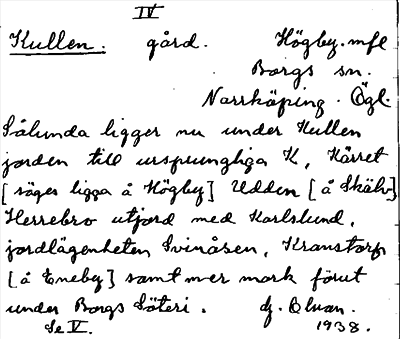 IV
Kullen. gård. Högby. mfl
Borgs sn.
Norrköping. Ögl.
Sålunda ligger nu under Kullen
jorden till ursprungliga K, Kärret
[säges ligga å Högby] Udden [å Skälv]
Herrebro utjord med Karlslund,
jordlägenheten Svinåsen, Kranstorp
[å Eneby] samt mer mark förut
under Borgs Säteri. dz. Elwan.
Se V. 1938.